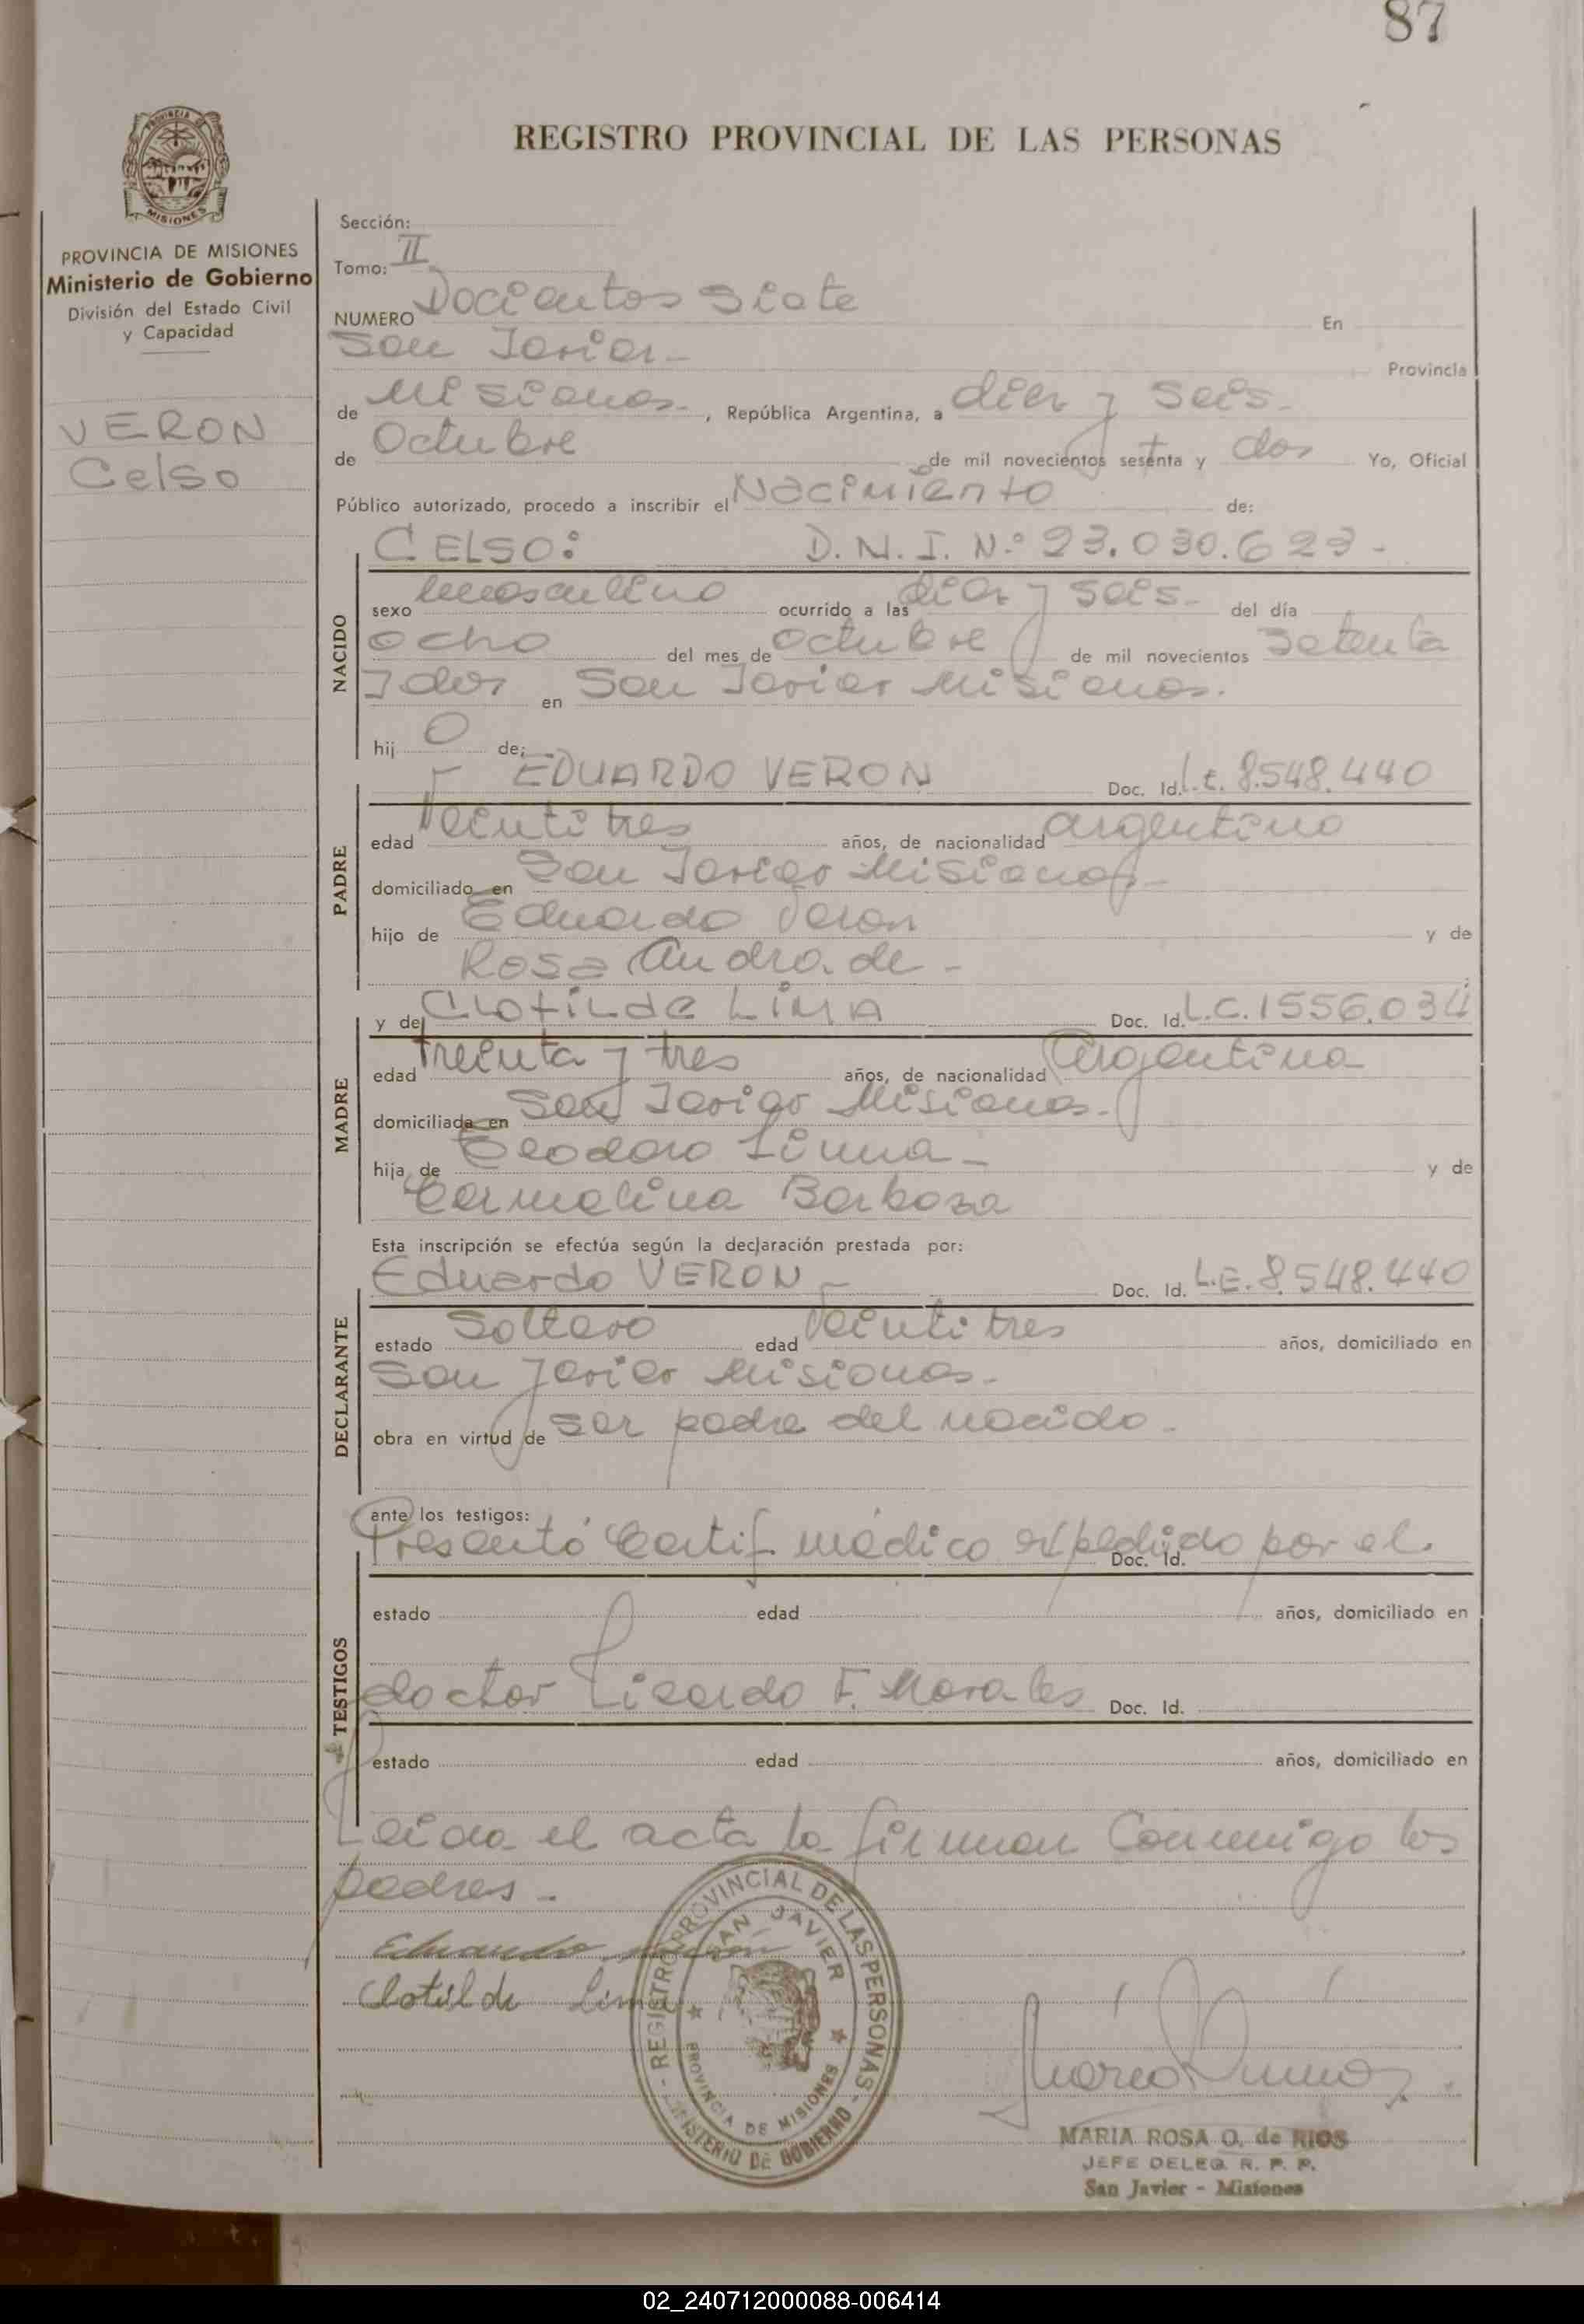 87
REGISTRO PROVINCIAL DE LAS PERSONAS
PROVINCIA DE MISIONES
MISIONES
PROVINCIA DE MISIONES
Ministerio de Gobierno
División del Estado Civil
y Capacidad
VERON
Celso
Sección:
Tomo: II
NUMERO Docientos Siete En
San Javier - Provincia
de Misiones - , República Argentina, a diez y seis -
de Octubre de mil novecientos sesenta y dos Yo, Oficial
Público autorizado, procedo a inscribir el Nacimiento de:
NACIDO
CELSO: D. N. I. N.º 23.030.623 -
sexo masculino ocurrido a las diez y seis - del día
ocho del mes de octubre de mil novecientos setenta
y dos en San Javier Misiones.
hij o de:
PADRE
EDUARDO VERON Doc. Id. L.E. 8.548.440
edad Veintitres años, de nacionalidad argentino
domiciliado en San Javier Misiones -
hijo de Eduardo Veron y de
Rosa Andrade -
MADRE
y de Clotilde LIMA Doc. Id. L.C. 1556.034
edad treinta y tres años, de nacionalidad Argentina
domiciliada en San Javier Misiones -
hija de Teodoro Lima - y de
Carmelina Barboza
Esta inscripción se efectúa según la declaración prestada por:
DECLARANTE
Eduardo VERON - Doc. Id. L.E. 8.548.440
estado Soltero edad Veintitres años, domiciliado en
San Javier Misiones -
obra en virtud de ser padre del nacido -
ante los testigos:
TESTIGOS
Presentó Certif. médico expedido por el. Doc. Id.
estado edad años, domiciliado en
doctor Ricardo F. Morales Doc. Id.
estado edad años, domiciliado en
Leida el acta la firman Conmigo los
padres -
Eduardo Verón
Clotilde Lima
- REGISTRO PROVINCIAL DE LAS PERSONAS - MINISTERIO DE GOBIERNO
SAN JAVIER
PROVINCIA DE MISIONES
MARIA ROSA O. de RIOS
JEFE DELEG. R. P. P.
San Javier - Misiones
02_240712000088-006414